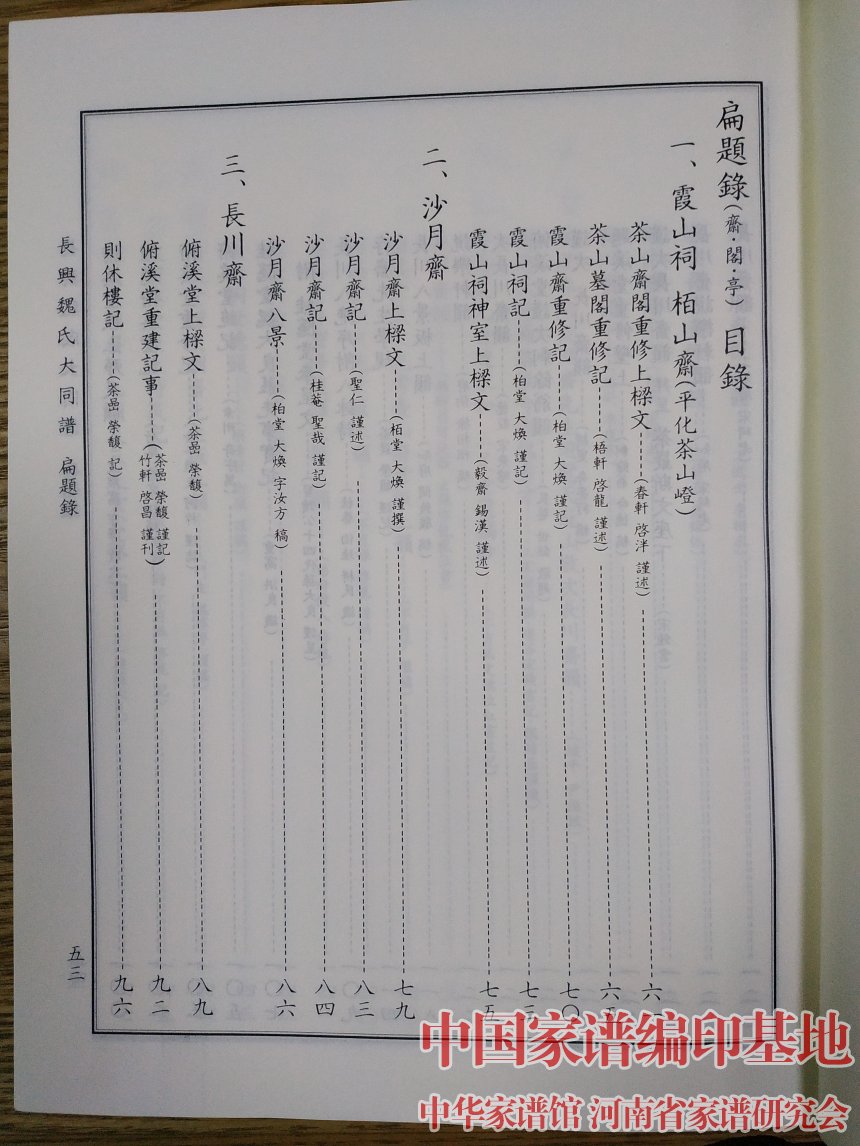 扁題錄(齋·閣·亭) 目錄
一、霞山祠 栢山齋(平化茶山嶝)
茶山齋閣重修上樑文(春軒 啓泮 謹述)六
茶山墓閣重修記(梧軒 啓龍 謹述)六五
霞山齋重修記(柏堂 大煥 謹記)七〇
霞山祠記(柏堂 大煥 謹記)七三
霞山祠神室上樑文(毅齋 錫漢 謹述)七五
二、沙月齋
沙月齋上樑文(栢堂 大煥 謹撰)七九
沙月齋記(聖仁 謹述)八三
沙月齋記(桂菴 聖哉 謹記)八四
沙月齋八景(柏堂 大煥 字汝方 稿)八六
三、長川齋
俯溪堂上樑文(茶嵒 榮馥)八九
俯溪堂重建記事(茶嵒 榮馥 謹記 竹軒 啓昌 謹刊)九二
則休樓記(茶嵒 榮馥 記)九六
長興魏氏大同譜 扁題錄
五三
中国家谱编印基地
中华家谱馆 河南省家谱研究会